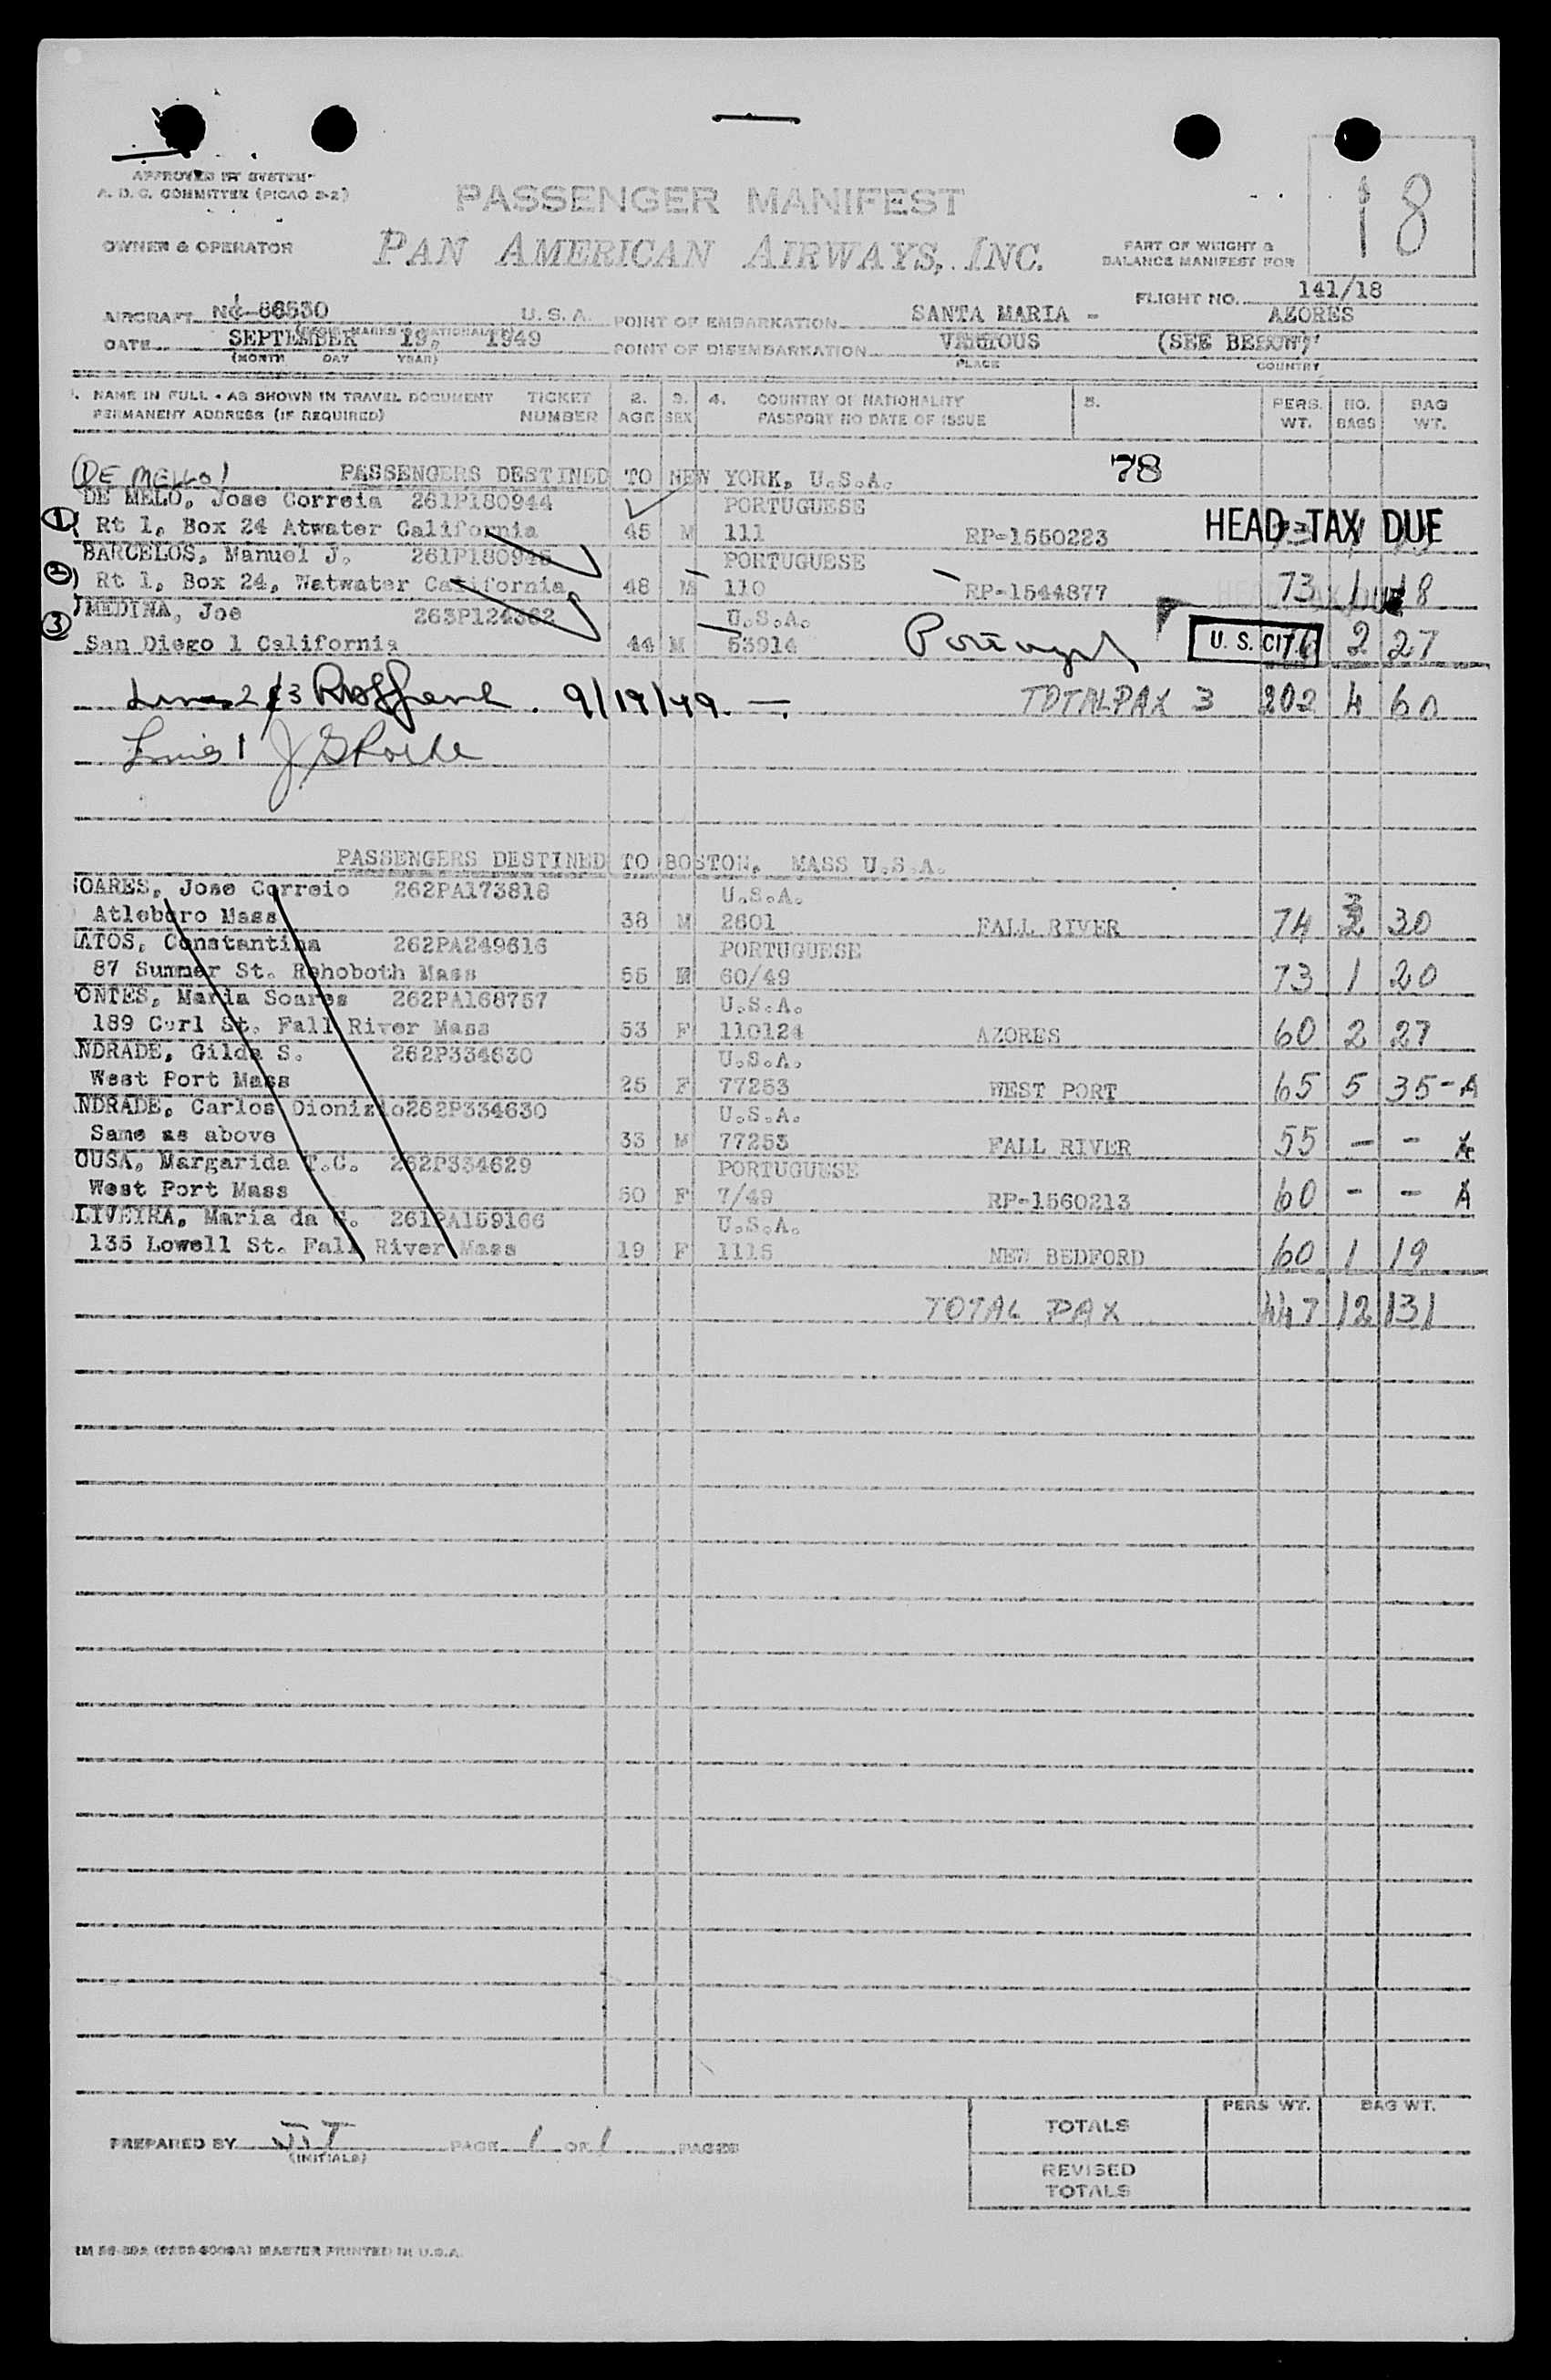 APPROVED BY SYSTEM
A. D. C. COMMITTEE (PICAO 2-2)
PASSENGER MANIFEST
18
OWNER & OPERATOR PAN AMERICAN AIRWAYS, INC. PART OF WEIGHT &
BALANCE MANIFEST FOR
FLIGHT NO. 141/18
AIRCRAFT NC-88530 U. S. A. POINT OF EMBARKATION SANTA MARIA - AZORES
DATE SEPTEMBER 19, 1949 POINT OF DISEMBARKATION VARIOUS (SEE BELOW)
(MONTH DAY YEAR) PLACE COUNTRY
1. NAME IN FULL - AS SHOWN IN TRAVEL DOCUMENT TICKET 2. 3. 4. COUNTRY OF NATIONALITY 5. PERS. NO. BAG
PERMANENT ADDRESS (IF REQUIRED) NUMBER AGE SEX PASSPORT NO DATE OF ISSUE WT. BAGS WT.
(DE MELLO) PASSENGERS DESTINED TO NEW YORK, U.S.A. 78
DE MELO, Jose Correia 261P180944 PORTUGUESE
1 Rt 1, Box 24 Atwater California 45 M 111 RP-1550223 HEAD TAX DUE
BARCELOS, Manuel J. 261P180945 PORTUGUESE
2 Rt 1, Box 24, Watwater California 48 M 110 RP-1544877 73 1 18
MEDINA, Joe 263P124362 U.S.A.
3 San Diego 1 California 44 M 53914 Portugal U. S. CIT 76 2 27
Lines 2 & 3 9/19/49. TOTAL PAX 3 202 4 60
Line 1
PASSENGERS DESTINED TO BOSTON, MASS U.S.A.
OARES, Jose Correio 262PA173818 U.S.A.
Atleboro Mass 38 M 2601 FALL RIVER 74 3 30
ATOS, Constantina 262PA249616 PORTUGUESE
87 Summer St. Rehoboth Mass 55 60/49 73 1 20
ONTES, Maria Soares 262PA168757 U.S.A.
189 Curl St. Fall River Mass 53 F 110124 AZORES 60 2 27
NDRADE, Gilda S. 262P334630 U.S.A.
West Port Mass 25 F 77253 WEST PORT 65 5 35-A
NDRADE, Carlos Dionizio 262P334630 U.S.A.
Same as above 33 M 77253 FALL RIVER 55 - - A
OUSA, Margarida T.C. 262P334629 PORTUGUESE
West Port Mass 50 F 7/49 RP-1560213 60 - - A
LIVEIRA, Maria da C. 261PA159166 U.S.A.
135 Lowell St. Fall River Mass 19 F 1115 NEW BEDFORD 60 1 19
TOTAL PAX 447 12 131
PERS WT. BAG WT.
TOTALS
PREPARED BY JJT PAGE 1 OF 1 PAGES
(INITIALS)
REVISED
TOTALS
MASTER PRINTED IN U.S.A.